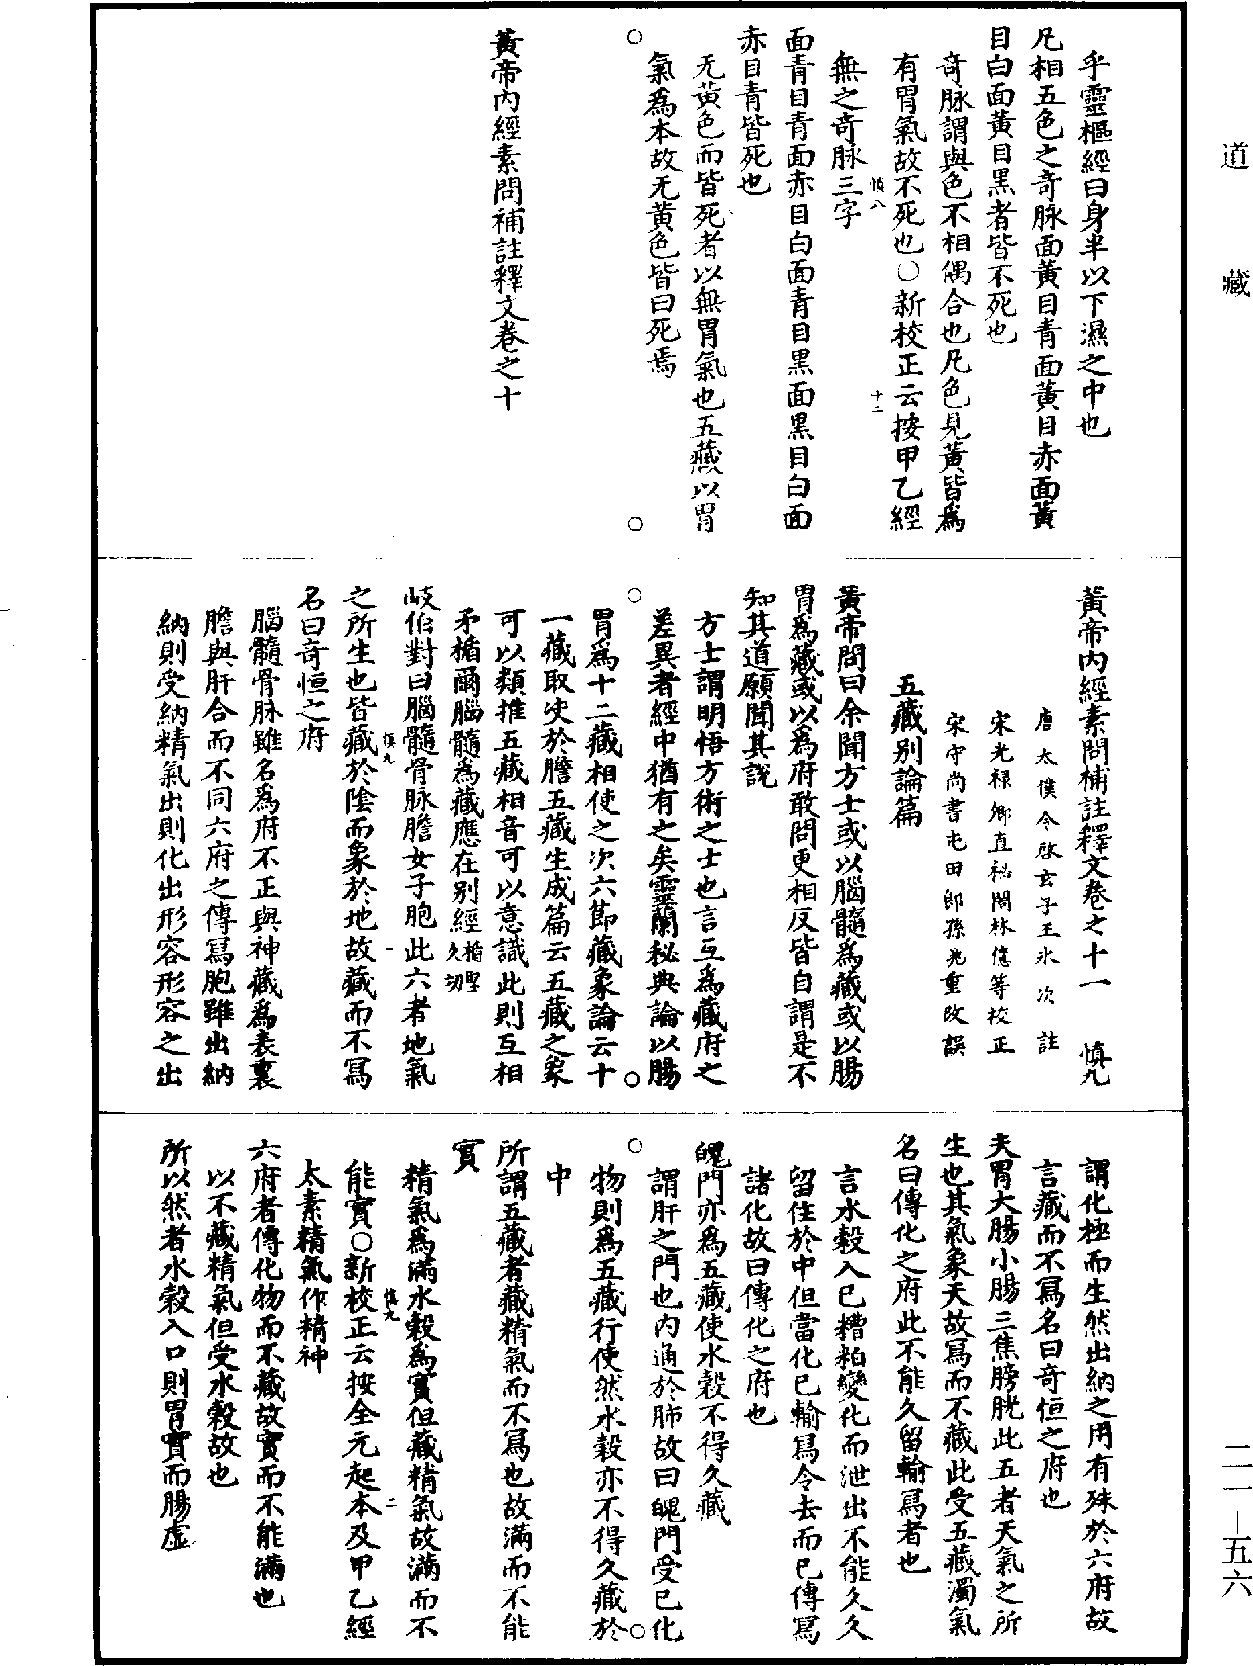 道藏
乎靈樞經曰身半以下濕之中也
凡相五色之奇脉面黃目青面黃目赤面黃
目白面黃目黑者皆不死也
奇脉謂與色不相偶合也凡色見黃皆爲
有胃氣故不死也○新校正云按甲乙經
慎八
十二
無之奇脉三字
面青目青面赤目白面青目黑面黑目白面
赤目青皆死也
无黃色而皆死者以無胃氣也五藏以胃
氣爲本故无黃色皆曰死焉
黃帝內經素問補註釋文卷之十
黃帝內經素問補註釋文卷之十一 慎九
唐太僕令啓玄子王氷次註
宋光祿鄉直秘閣林億等校正
宋守尚書屯田郎孫兆重改誤
五藏別論篇
黃帝問曰余聞方士或以腦髓爲藏或以腸
胃爲藏或以爲府敢問更相反皆自謂是不
知其道願聞其說
方士謂明悟方術之士也言互爲藏府之
差異者經中猶有之矣靈蘭秘典論以腸
胃爲十二藏相使之次六節藏象論云十
一藏取決於膽五藏生成篇云五藏之象
可以類推五藏相音可以意識此則互相
矛楯爾腦髓爲藏應在別經楯堅久切
岐伯對曰腦髓骨脉膽女子胞此六者地氣
慎九
一
之所生也皆藏於陰而象於地故藏而不寫
名曰奇恒之府
腦髓骨脉雖名爲府不正與神藏爲表裏
膽與肝合而不同六府之傳寫胞雖出納
納則受納精氣出則化出形容形容之出
謂化極而生然出納之用有殊於六府故
言藏而不寫名曰奇恒之府也
夫胃大腸小腸三焦膀胱此五者天氣之所
生也其氣象天故寫而不藏此受五藏濁氣
名曰傳化之府此不能久留輸寫者也
言水穀入已糟粕變化而泄出不能久久
留住於中但當化已輸寫令去而已傳寫
諸化故曰傳化之府也
魄門亦爲五藏使水穀不得久藏
謂肝之門也內通於肺故曰魄門受已化
物則爲五藏行使然水穀亦不得久藏於
中
所謂五藏者藏精氣而不寫也故滿而不能
實
精氣爲滿水穀爲實但藏精氣故滿而不
能實○新校正云按全元起本及甲乙經
慎九
二
太素精氣作精神
六府者傳化物而不藏故實而不能滿也
以不藏精氣但受水穀故也
所以然者水穀入口則胃實而腸虛
二一—五六